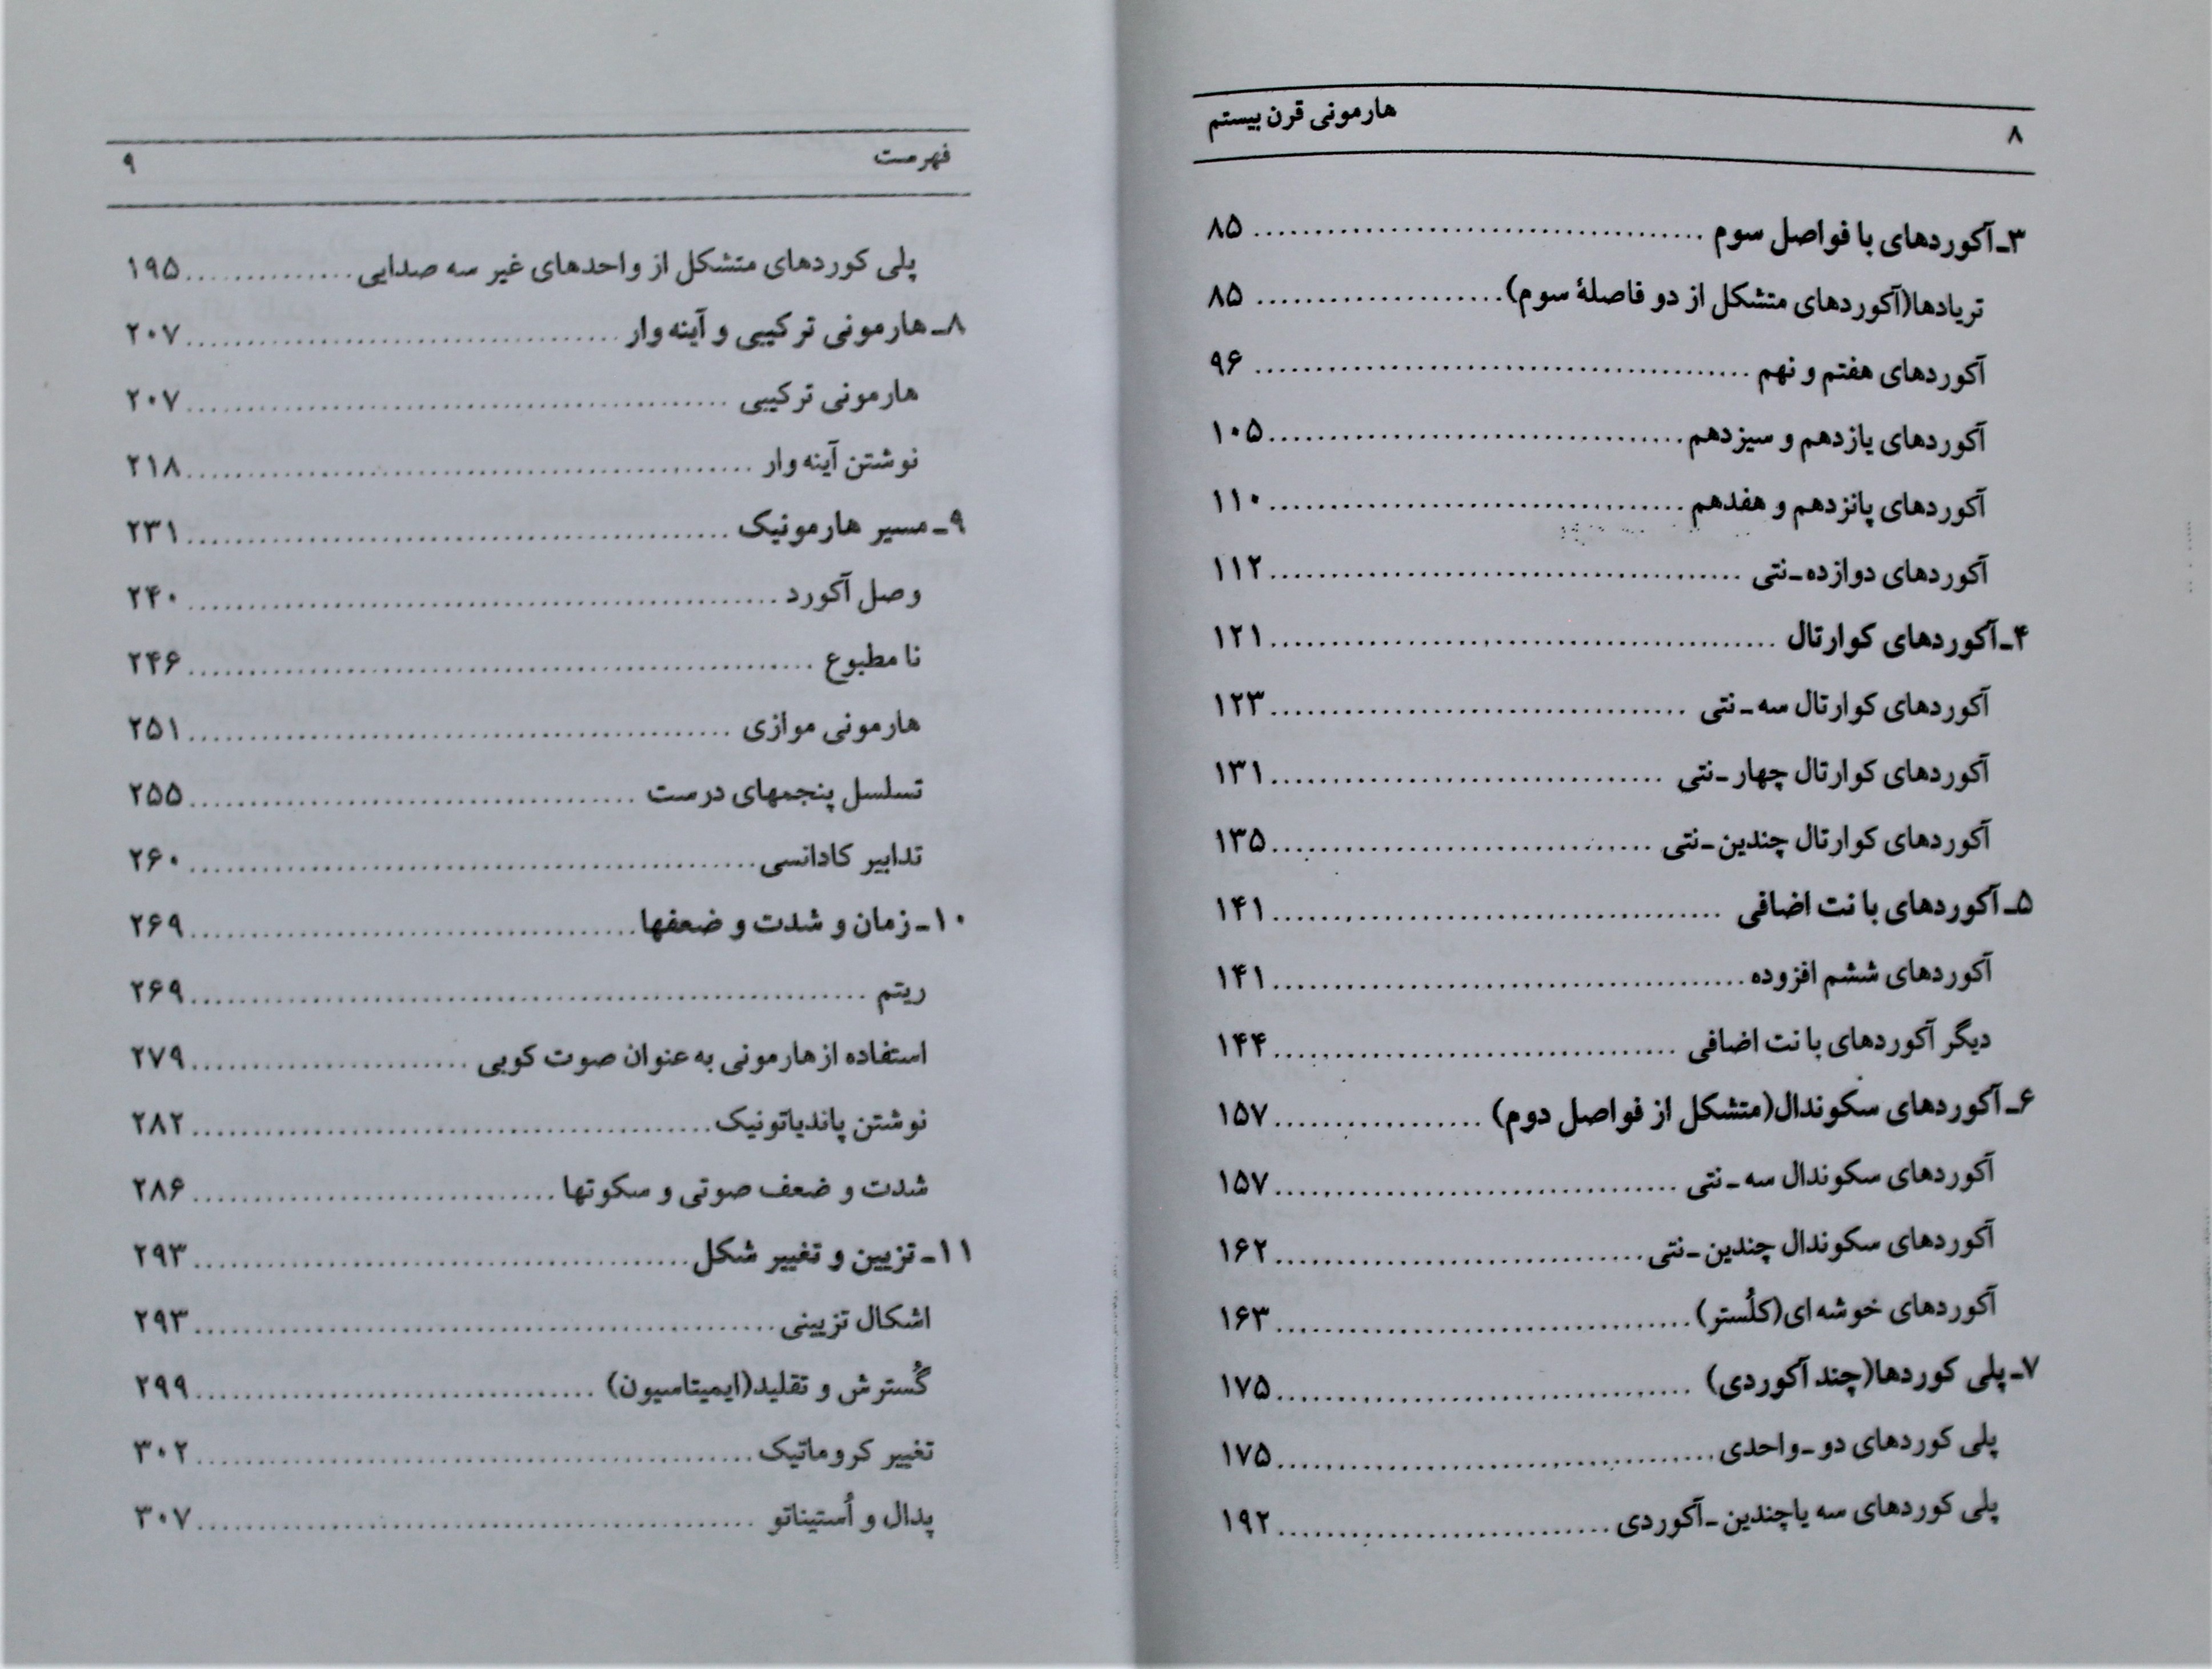 ۸ هارمونی قرن بیستم
۳ـ آکوردهای با فواصل سوم ........ ۸۵
تریادها(آکوردهای متشکل از دو فاصلهٔ سوم) ........ ۸۵
آکوردهای هفتم و نهم ........ ۹۶
آکوردهای یازدهم و سیزدهم ........ ۱۰۵
آکوردهای پانزدهم و هفدهم ........ ۱۱۰
آکوردهای دوازده‌ـنتی ........ ۱۱۲
۴ـ آکوردهای کوارتال ........ ۱۲۱
آکوردهای کوارتال سه‌ـنتی ........ ۱۲۳
آکوردهای کوارتال چهارـنتی ........ ۱۳۱
آکوردهای کوارتال چندین‌ـنتی ........ ۱۳۵
۵ـ آکوردهای با نت اضافی ........ ۱۴۱
آکوردهای ششم افزوده ........ ۱۴۱
دیگر آکوردهای با نت اضافی ........ ۱۴۴
۶ـ آکوردهای سکوندال(متشکل از فواصل دوم) ........ ۱۵۷
آکوردهای سکوندال سه‌ـنتی ........ ۱۵۷
آکوردهای سکوندال چندین‌ـنتی ........ ۱۶۲
آکوردهای خوشه‌ای(کلُستر) ........ ۱۶۳
۷ـ پلی کوردها(چند آکوردی) ........ ۱۷۵
پلی کوردهای دوـواحدی ........ ۱۷۵
پلی کوردهای سه یا چندین‌ـآکوردی ........ ۱۹۲
فهرست ۹
پلی کوردهای متشکل از واحدهای غیر سه صدایی ........ ۱۹۵
۸ـ هارمونی ترکیبی و آینه‌وار ........ ۲۰۷
هارمونی ترکیبی ........ ۲۰۷
نوشتن آینه‌وار ........ ۲۱۸
۹ـ مسیر هارمونیک ........ ۲۳۱
وصل آکورد ........ ۲۴۰
نا مطبوع ........ ۲۴۶
هارمونی موازی ........ ۲۵۱
تسلسل پنجمهای درست ........ ۲۵۵
تدابیر کادانسی ........ ۲۶۰
۱۰ـ زمان و شدت و ضعفها ........ ۲۶۹
ریتم ........ ۲۶۹
استفاده از هارمونی به عنوان صوت کوبی ........ ۲۷۹
نوشتن پاندیاتونیک ........ ۲۸۲
شدت و ضعف صوتی و سکوتها ........ ۲۸۶
۱۱ـ تزیین و تغییر شکل ........ ۲۹۳
اشکال تزیینی ........ ۲۹۳
گُسترش و تقلید(ایمیتاسیون) ........ ۲۹۹
تغییر کروماتیک ........ ۳۰۲
پدال و اُستیناتو ........ ۳۰۷